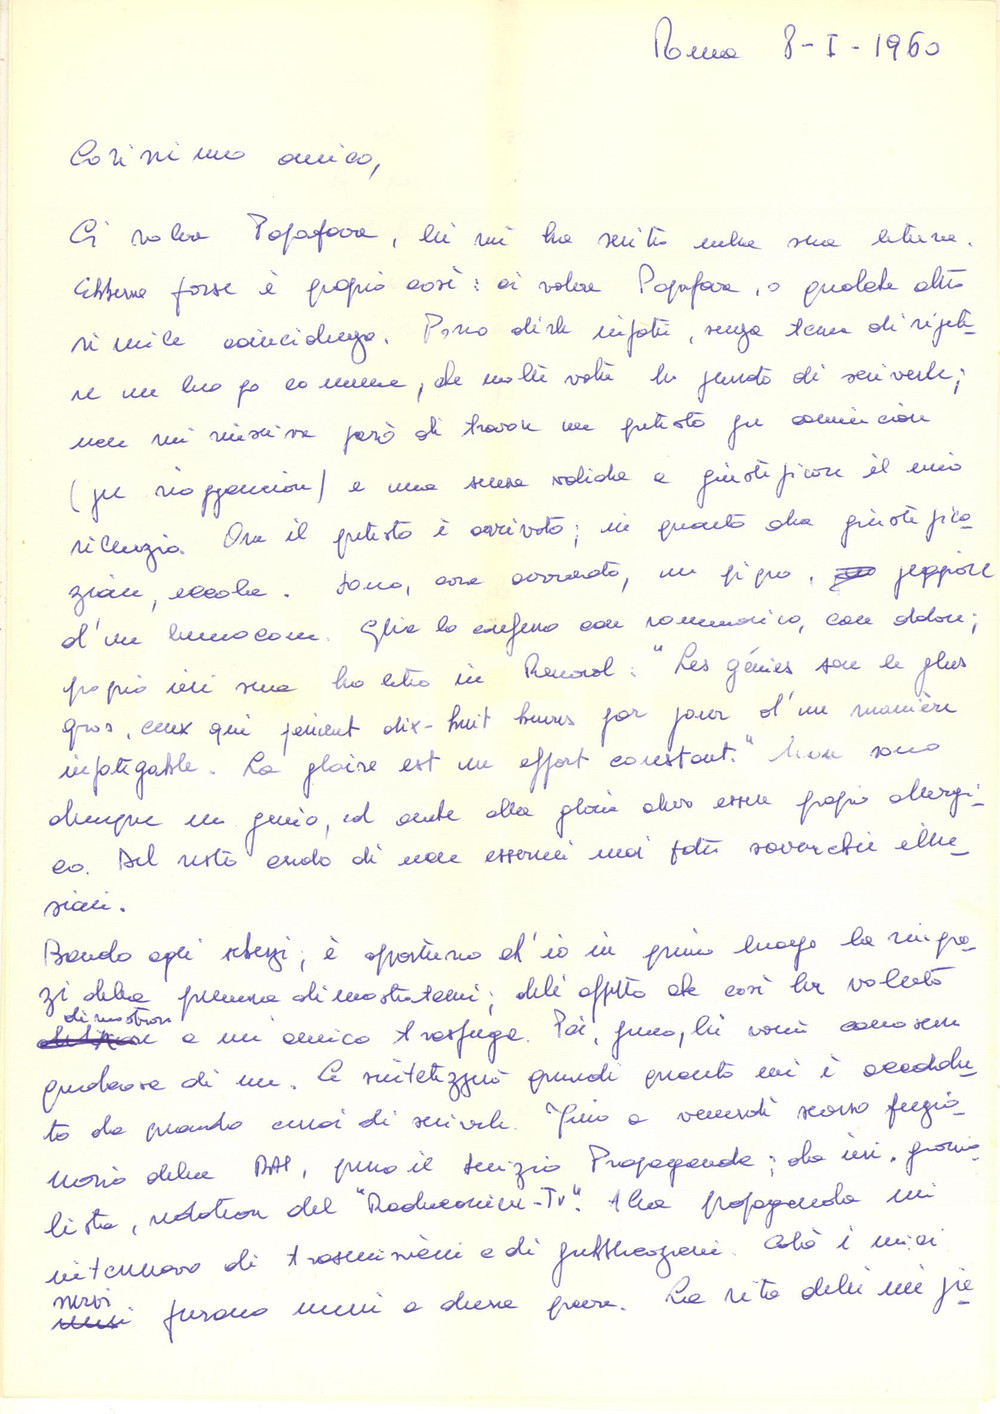 Roma 8-I-1960
Carissimo amico,
Ci voleva Papafava, lei mi ha scritto nella sua lettera.
Ebbene forse è proprio così: ci voleva Papafava, o qualche altra
simile coincidenza. Posso dirle infatti, senza tema di ripete-
re un luogo comune, che molte volte ho pensato di scriverle;
non mi riusciva però di trovare un pretesto per cominciare
(per riagganciare) e una scusa valida a giustificare il mio
silenzio. Ora il pretesto è arrivato; in quanto alla giustifica-
zione, eccola. Sono, cosa ovvia, un pigro, peggiore
d'un lumacone. Glielo confesso con rammarico, con dolore;
proprio ieri sera ho letto in Renard: "Les génies son le plus
gros, ceux qui peinent dix-huit heures par jour d'un manière
infatigable. La gloire est un effort constant." Non sono
dunque un genio, ed anche alla gloria devo essere proprio allergi-
co. Del resto credo di non essermi mai fatto soverchie illu-
sioni.
Bando agli scherzi; è opportuno ch'io in primo luogo la ringra-
zi della premura dimostratami; dell'affetto che così ha voluto
dimostrare a un amico trasfuga. Poi, penso, lei vorrà conoscere
qualcosa di me. Le sintetizzerò quindi quanto mi è accadu-
to da quando cessai di scriverle. Fino a venerdì scorso funzio-
nario della RAI, presso il Servizio Propaganda; da ieri, giorna-
lista, redattore del "Radiocorriere-TV". Alla propaganda mi
interessavo di trasmissioni e di pubblicazioni. Colà i miei
nervi furono messi a dura prova. La vita dell'im pie-